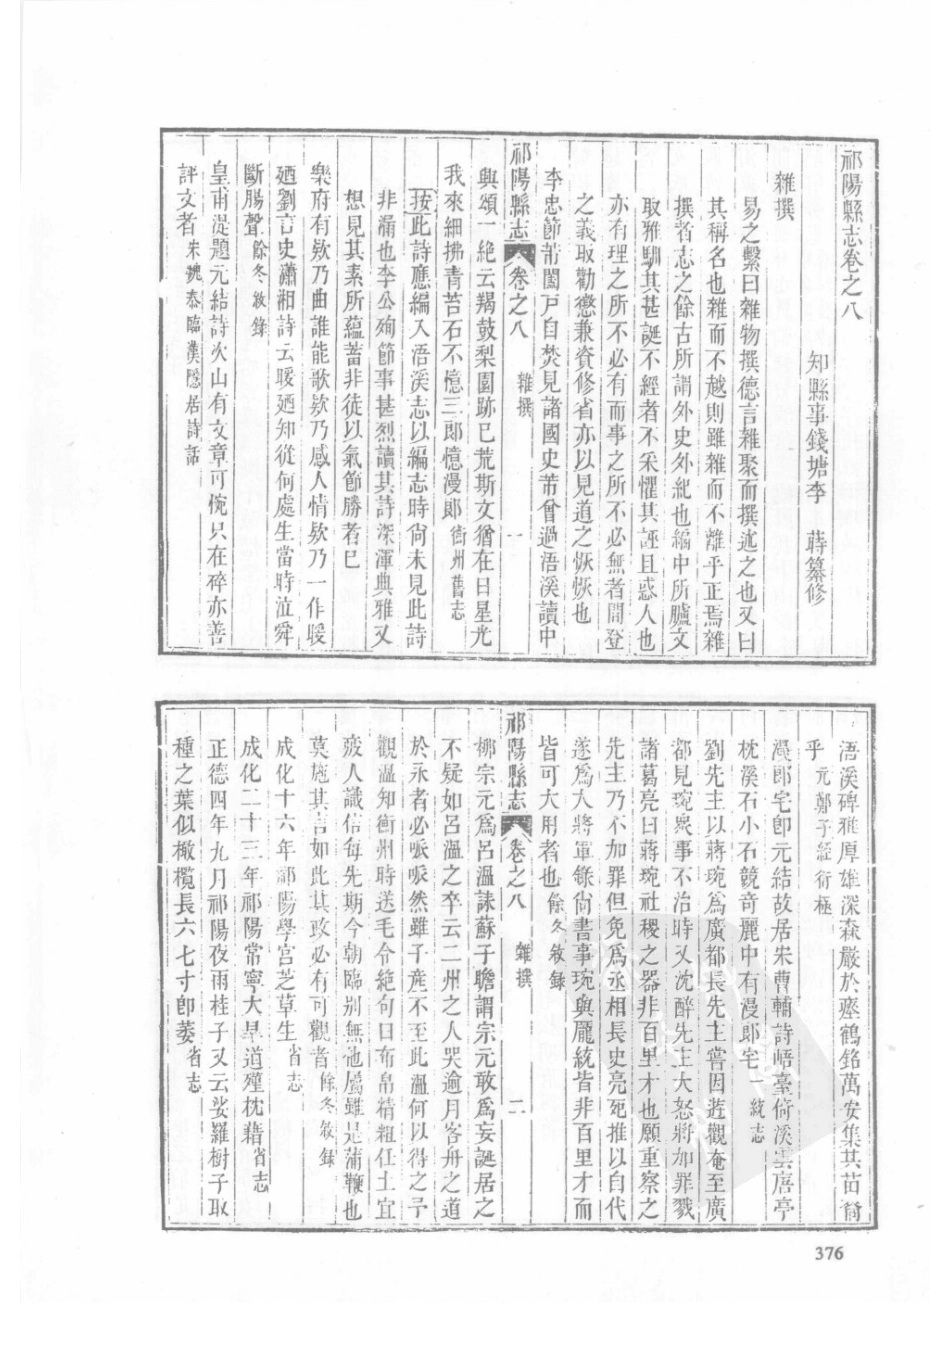 祁陽縣志卷之八
知縣事錢塘李　蒔纂修
雜撰
易之繫曰雜物撰德言雜聚而撰述之也又曰
其稱名也雜而不越則雖雜而不離乎正焉雜
撰者志之餘古所謂外史外紀也編中所臚文
取雅馴其甚誕不經者不采懼其誣且惑人也
亦有理之所不必有而事之所不必無者間登
之義取勸懲兼資修省亦以見道之恢恢也
李忠節芾闔戶自焚見諸國史芾曾過浯溪讀中
祁陽縣志　卷之八　雜撰　一
興頌一絕云羯鼓梨園跡已荒斯文猶在日星光
我來細拂青苔石不憶三郎憶漫郎衡州舊志
按此詩應編入浯溪志以編志時尙未見此詩
非漏也李公殉節事甚烈讀其詩深渾典雅又
想見其素所蘊蓄非徒以氣節勝者已
樂府有欸乃曲誰能歌欸乃感人情欸乃一作曖
廼劉言史瀟湘詩云曖廼知從何處生當時泣舜
斷腸聲餘冬敘錄
皇甫湜題元結詩次山有文章可惋只在碎亦善
評文者朱槐泰臨漢隱居詩話
浯溪碑雅厚雄深森嚴於瘞鶴銘萬安集其苗裔
乎元鄭子經衍極
漫郎宅卽元結故居朱曹輔詩峿臺倚溪雲㾿亭
枕溪石小石競奇麗中有漫郎宅一統志
劉先主以蔣琬爲廣都長先主嘗因遊觀奄至廣
都見琬衆事不治時又沈醉先主大怒將加罪戮
諸葛亮曰蔣琬社稷之器非百里才也願重察之
先主乃不加罪但免爲丞相長史亮死推以自代
遂爲大將軍錄尙書事琬與龐統皆非百里才而
皆可大用者也餘冬敘錄
祁陽縣志　卷之八　雜撰　二
柳宗元爲呂溫誄蘇子瞻謂宗元敢爲妄誕居之
不疑如呂溫之卒云二州之人哭逾月客舟之道
於永者必哌哌然雖子產不至此溫何以得之予
觀溫知衡州時送毛令絕句曰布帛精粗任土宜
疲人識信每先期今朝臨別無他屬雖是蒲鞭也
莫施其言如此其政必有可觀者餘冬敘錄
成化十六年祁陽學宮芝草生省志
成化二十三年祁陽常寧大旱道殣枕藉省志
正德四年九月祁陽夜雨桂子又云娑羅樹子取
種之葉似橄欖長六七寸卽萎省志
376